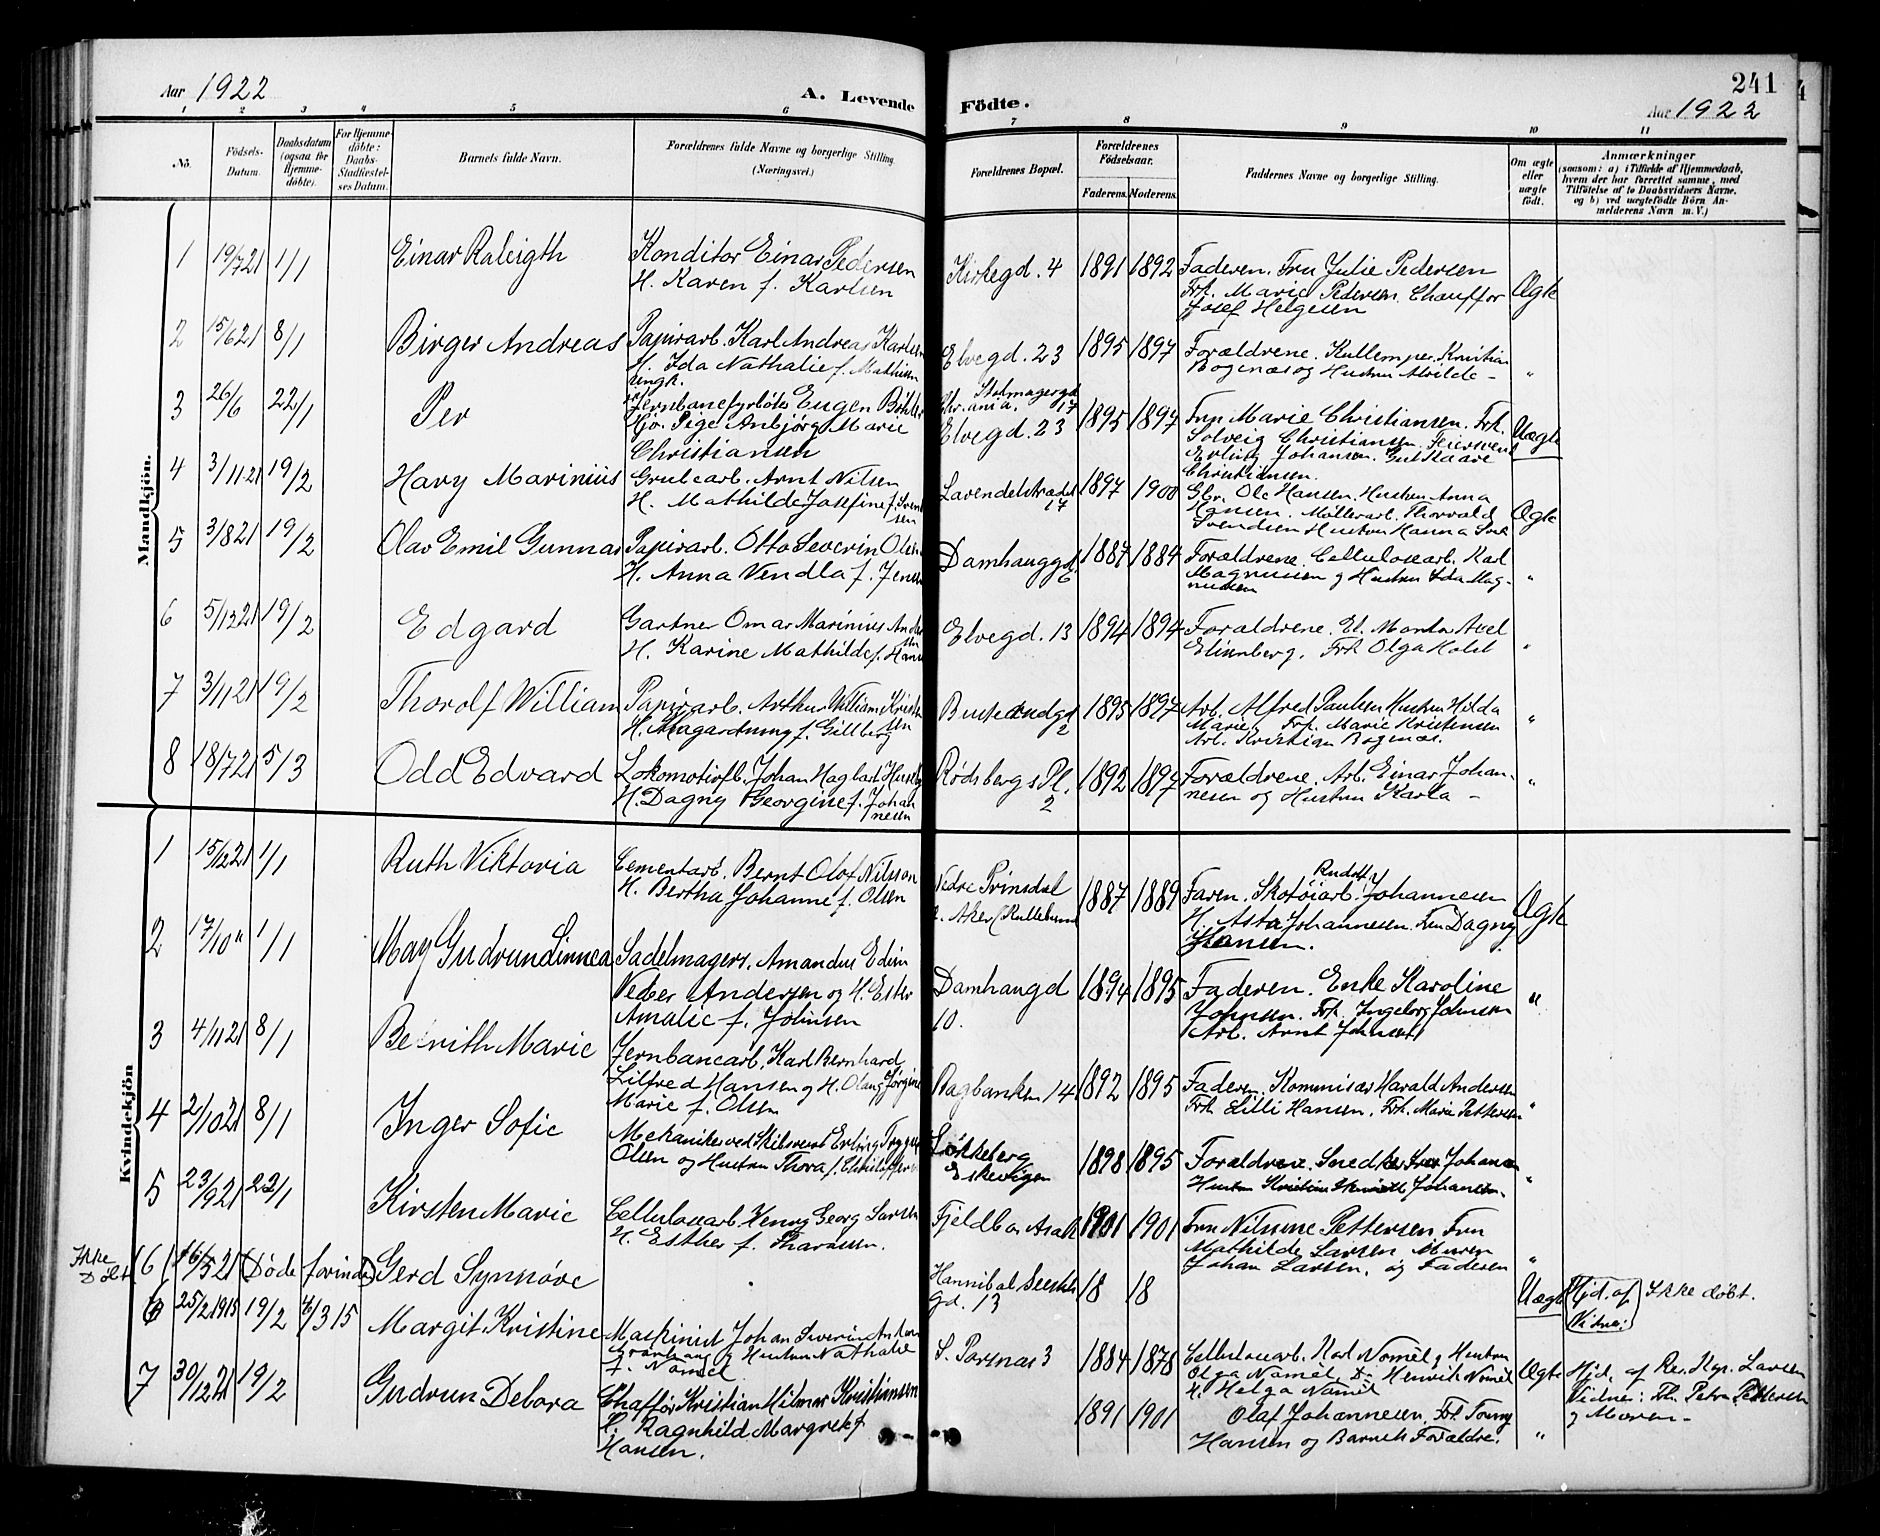 241
Aar 1922
A. Levende Fødte.
Aar 1922
1 2 3 4 5 6 7 8 9 10 11
No. Födsels-Datum. Daabsdatum (ogsaa for Hjemmedöbte). For Hjemmedöbte: Daabs-Stadfestelses Datum. Barnets fulde Navn. Forældrenes fulde Navne og borgerlige Stilling. (Næringsvei.) Forældrenes Bopæl. Forældrenes Födselsaar. Faderens. Moderens. Faddernes Navne og borgerlige Stilling. Om ægte eller uægte födt. Anmærkninger (saasom: a) i Tilfælde af Hjemmedaab, hvem der har forrettet samme, med Tilföielse af to Daabsvidners Navne. og b) ved uægtefödte Börn Anmelderens Navn m. V.)
Mandkjön.
1 19/7 21 1/1 Einar Raleigth Konditor Einar Pedersen Kirkegd. 4 1891 1892 Faderen. Fru Julie Pedersen Ægte
H. Karen f. Karlsen Frk. Marie Pedersen. Chauffør
Josef Helgesen
2 15/6 21 8/1 Birger Andreas Papirarb. Karl Andreas Karlsen Elvegd. 23 1895 1897 Forældrene. Kristian "
H. Ida Nathalie f. Mathisen Bogenæs og Hustru Alvilde -
3 26/6 22/1 Per Jernbanefyrbøter Eugen Chr.ania. 17 1895 1897 Fru Marie Christiansen. Frk. Uægte
Pige Anbjørg Marie Elvegd. 23 Solveig Christiansen.
Christiansen Erling Johansen. Gut Kaare
Christiansen.
4 3/11 21 19/2 Hary Marinius Arnt Nilsen Lavendelstrædet 17 1897 1900 Gbr. Ole Hansen. Hustru Anna Ægte
H. Mathilde Josefine f. Svendsen Hansen. Møllerarb. Thorvald
Svendsen Hustru Hanna
5 3/8 21 19/2 Olav Emil Gunnar Papirarb. Otto Severin Olsen Damhauggd. 6 1887 1884 Forældrene. Cellulosearb. Karl "
H. Anna Vendla f. Magnussen og Hustru Ida Magnussen
6 5/12 21 19/2 Edgard Gartner Omar Marinius Elvegd. 13 1894 1894 Forældrene. El. Montør Axel "
H. Karine Mathilde f. Frk Olga Holst
7 3/11 21 19/2 Thorolf William Papirarb. Arthur William 2 1895 1897 Arb. Alfred Paulsen Hustru Hilda "
f. Gillberg Marie. Frk. Marie Kristensen
Arb. Kristian Bogenæs.
8 18/7 21 5/3 Odd Edvard Lokomotivfb. Johan Hagbart Rødsbergs Pl. 2 1892 1897 Forældrene. Arb. Einar Johannesen og Hustru Karla - "
H. Dagny Georgine f. Johannesen
Kvindekjön
1 15/12 21 1/1 Ruth Viktoria Cementarb. Bernt Olof Nilsson Nedre Prinsdal 1887 1889 Faren. Skotøiarb. Rudolf Johannesen Ægte
H. Bertha Johanne f. Olsen Aker H. Asta Johannesen. Fru Dagny
Hansen.
2 17/10 " 1/1 May Gudrun Linnea Sadelmagers. Amandus Edvin Damhaugd 10. 1894 1895 Faderen. Enke Karoline "
Andersen og H. Ester Johnsen. Frk. Ingeborg Johnsen
Amalie f. Johnsen Arb. Arnt Johnsen
3 4/11 21 8/1 Marie Jernbanearb. Karl Bernhard Ragbanken 14 1892 1895 Faderen. Kommisær Harald Andersen "
Lilfred Hansen og H. Frk. Lilli Hansen. Frk. Marie Pettersen
Marie f. Olsen
4 2/10 21 8/1 Inger Sofie Mekaniker ved Erling Trygve Løkkeberg 1898 1895 Forældrene. Snedker Johansen "
Olsen og Hustru Thora f. Eskevigen Hustru Johansen.
5 23/9 21 22/1 Kirsten Marie Cellulosearb. Henry Georg Larsen Fjeldbo Asak 1901 1901 Fru Pettersen. Fru "
H. Esther f. Mathilde Larsen. Murer
Johan Larsen. og Faderen
Ikke Døbt (6) 16/5 21 (Døde forinden) Gerd Synnøve Hannibal gd. 13 18 18 Uægte Hjd. af Vidne: Ikke døbt.
6 25/2 1915 19/2 4/3 15 Margit Kristine Maskinist Johan Severin Anton S. Parsnas 3 1884 1878 Cellulosearb. Karl Namél og Hustru Ægte Hjd. af Re. Kap. Larsen
og Hustru Nathalie Olga Namél. Henrik Namél Vidner: Frk. Petra Pettersen
f. Namél H. Helga Namél og Moren -
7 30/12 21 19/2 Gudrun Debora Chaffør Kristian Hilmar Kristiansen 1891 1901 Olaf Johannesen. Frk Tonny "
H. Ragnhild Margrete f. Hansen og Barnets Forældre.
Hansen.